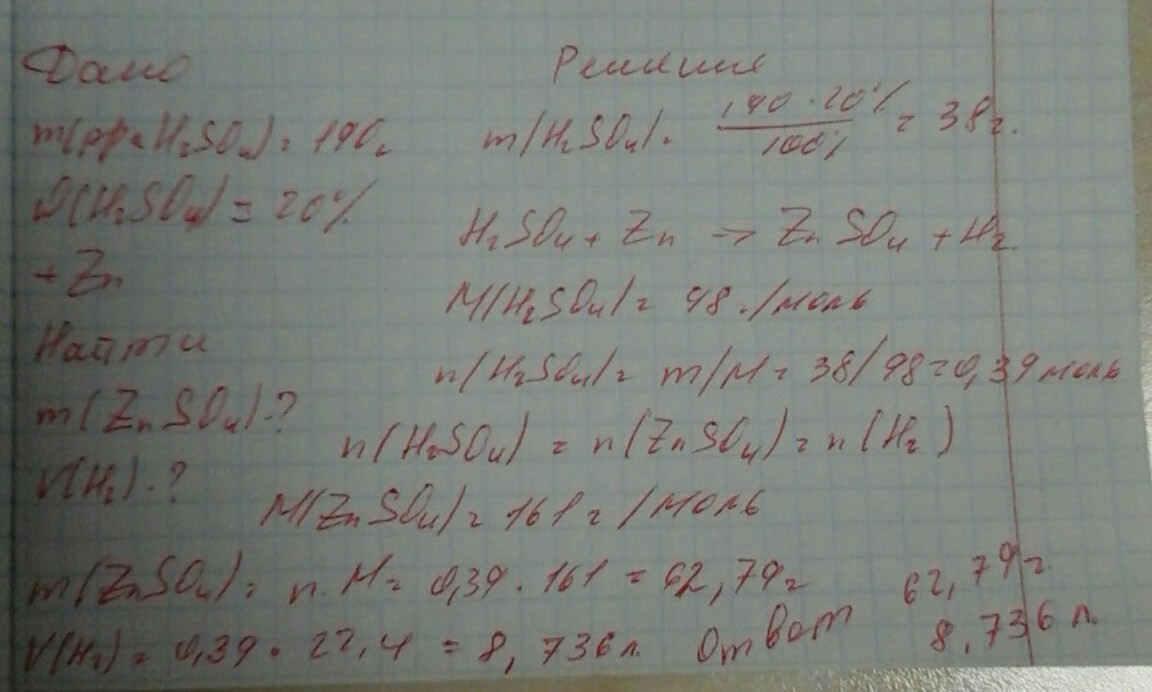 Дано
m(р-ра H₂SO₄) = 190г
ω(H₂SO₄) = 20%
+ Zn
Найти
m(ZnSO₄)-?
V(H₂)-?
Решение
m(H₂SO₄) = 190·20%/100% = 38г.
H₂SO₄ + Zn → ZnSO₄ + H₂
M(H₂SO₄) = 98г/моль
n(H₂SO₄) = m/M = 38/98 = 0,39 моль
n(H₂SO₄) = n(ZnSO₄) = n(H₂)
M(ZnSO₄) = 161г/моль
m(ZnSO₄) = n·M = 0,39·161 = 62,79г
V(H₂) = 0,39·22,4 = 8,736л Ответ
62,79г.
8,736 л.